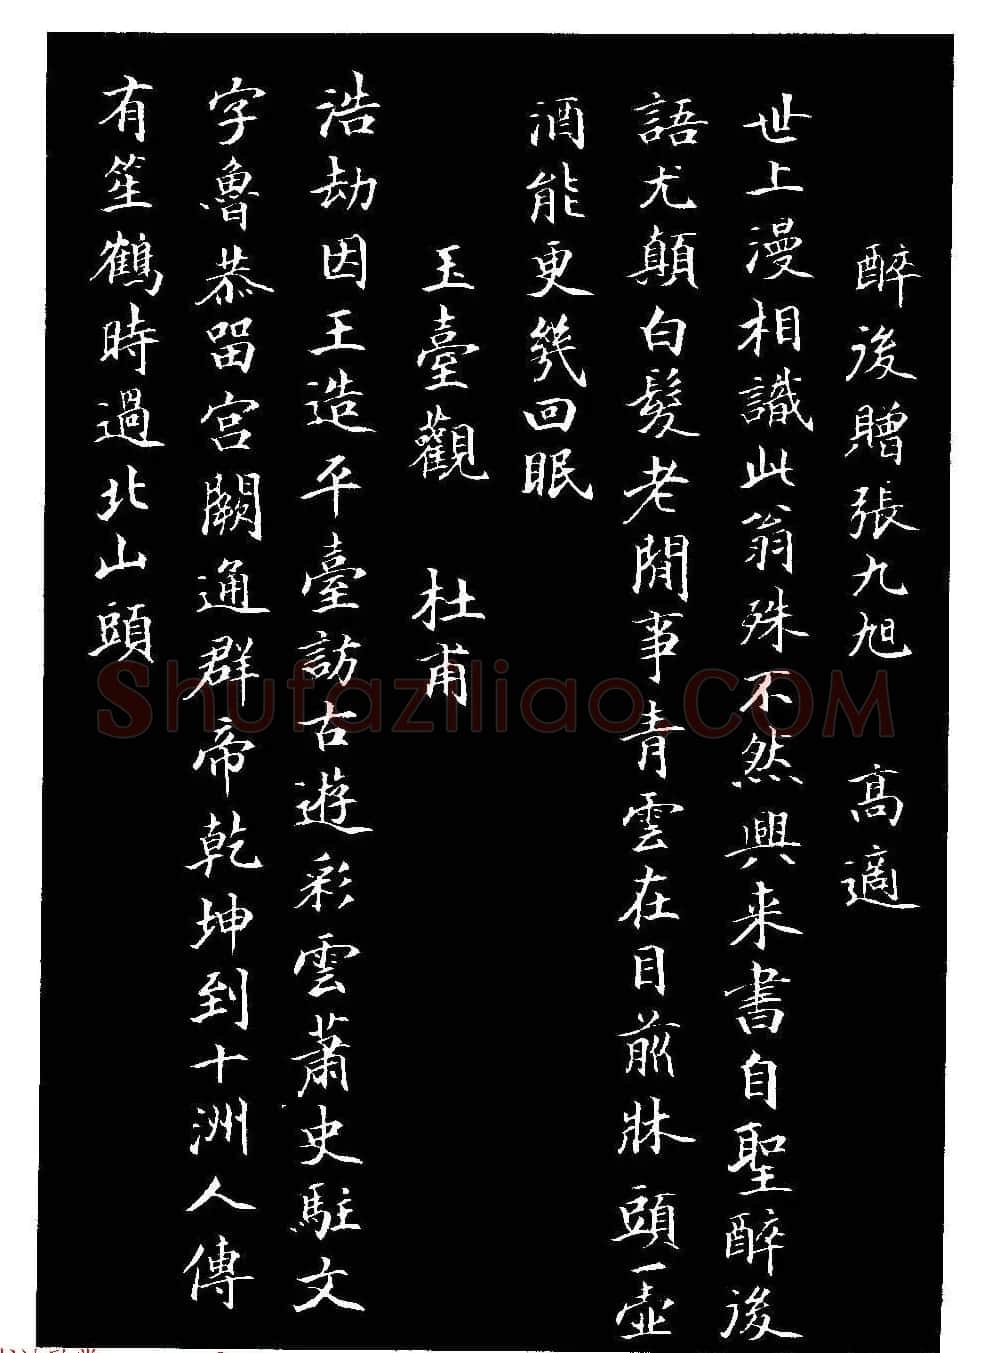 醉後贈張九旭 高適
世上漫相識此翁殊不然興来書自聖醉後
語尤顛白髮老閒事青雲在目前牀頭一壺
酒能更幾回眠
玉臺觀 杜甫
浩劫因王造平臺訪古遊彩雲蕭史駐文
字魯恭留宫闕通群帝乾坤到十洲人傳
有笙鶴時過北山頭
Shufaziliao.COM